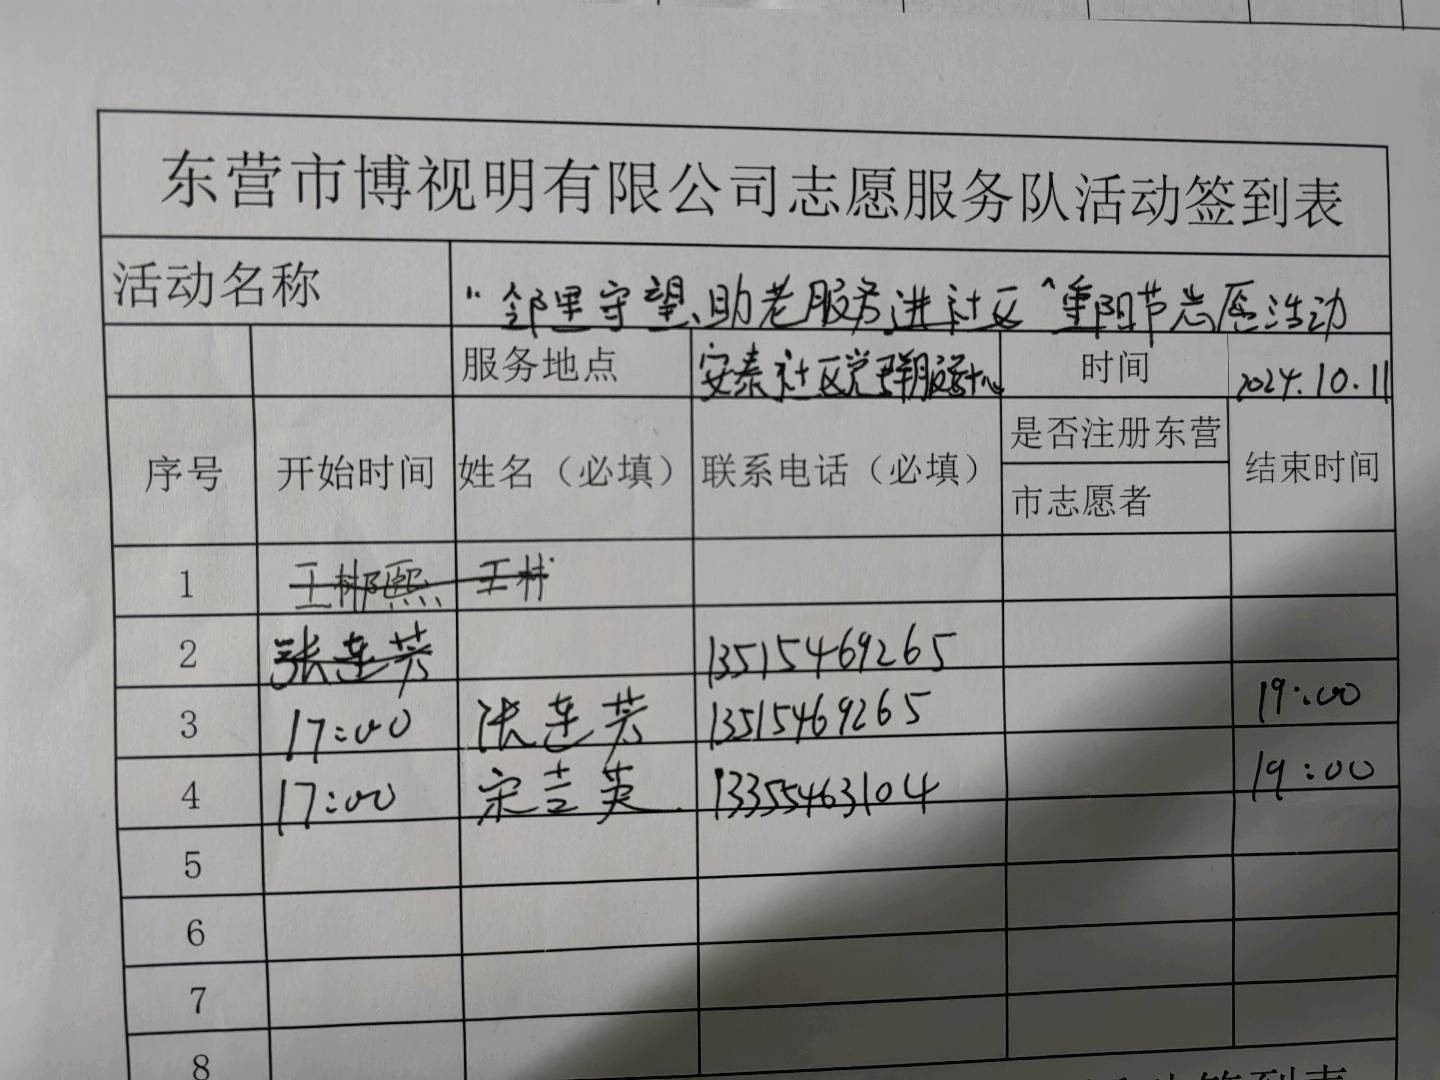 东营市博视明有限公司志愿服务队活动签到表
活动名称 “邻里守望、助老服务进社区“重阳节志愿活动
服务地点 安泰社区党群服务中心 时间 2024.10.11
序号 开始时间 姓名（必填） 联系电话（必填） 是否注册东营市志愿者 结束时间
1 王郴熙 王林
2 张连芳 13515469265
3 17:00 张连芳 13515469265 19:00
4 17:00 宋吉英 13355463104 19:00
5
6
7
8
签到表